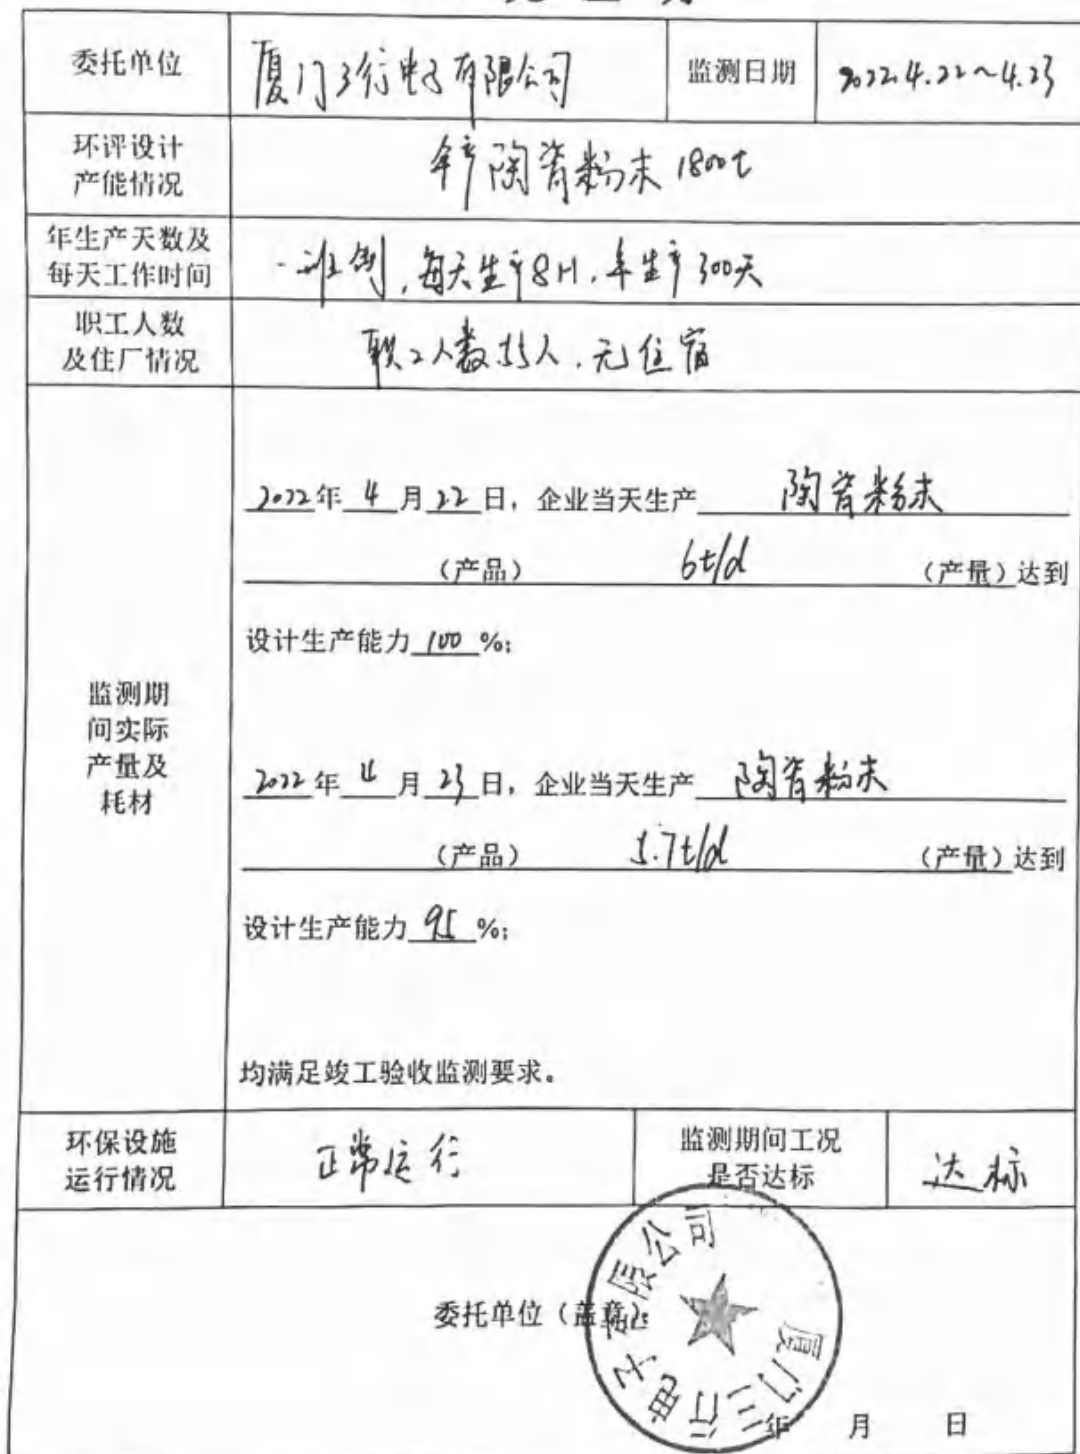 委托单位 厦门三行电子有限公司 监测日期 2022.4.22~4.23
环评设计
产能情况
年产陶瓷粉末 1800t
年生产天数及
每天工作时间
一班制,每天生产8H,年生产300天
职工人数
及住厂情况
职工人数55人,无住宿
监测期
间实际
产量及
耗材
2022年 4 月 22 日,企业当天生产 陶瓷粉末
(产品) 6t/d (产量)达到
设计生产能力 100 %;
2022年 4 月 23 日,企业当天生产 陶瓷粉末
(产品) 5.7t/d (产量)达到
设计生产能力 95 %;
均满足竣工验收监测要求。
环保设施
运行情况
正常运行
监测期间工况
是否达标
达标
委托单位(盖章):
厦门三行电子有限公司
年 月 日